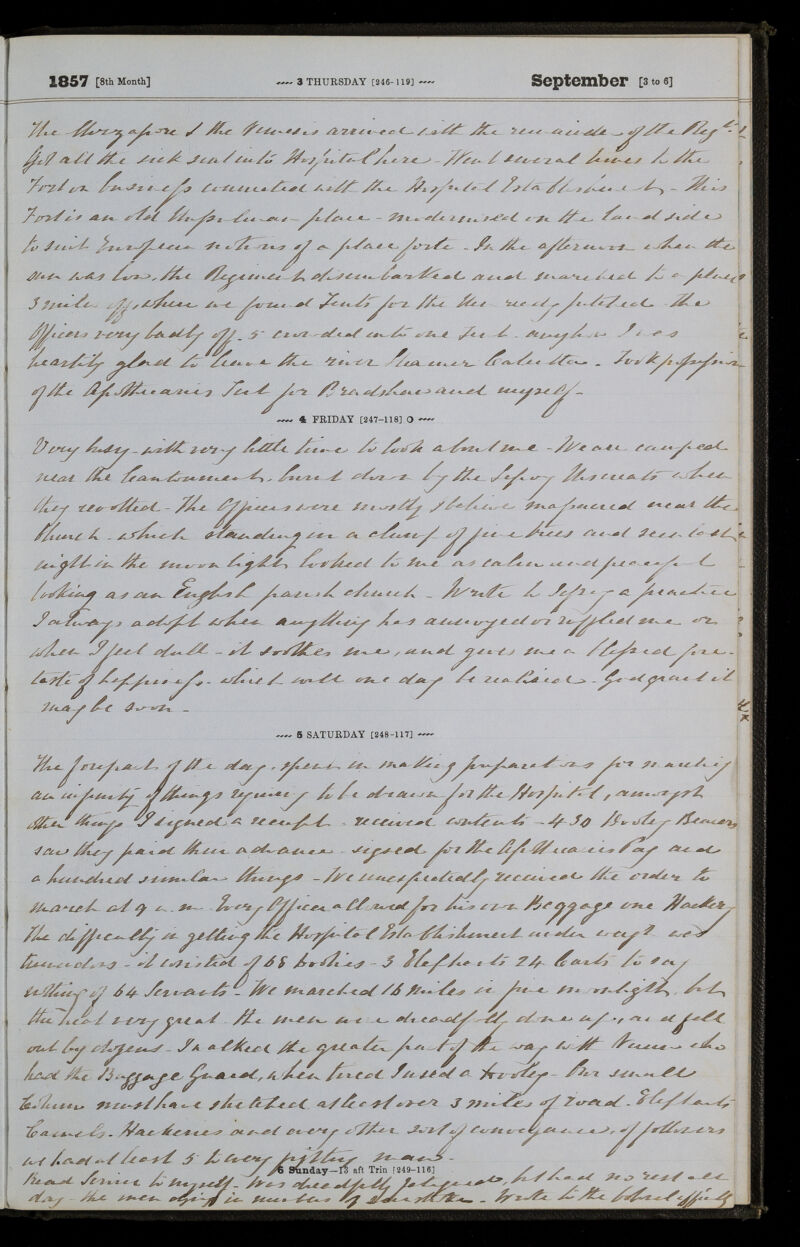 1857 [8th Month] 3 THURSDAY [246-119] September [3 to 6]
The Mirzapore & the Nemesis arrived with the remainder of the Regt.
Got all the sick sent into Hospital here - Went several times to the
Fort on business connected with the Hospital Establishment - This
Fort is an old Mussulman place - modernised on the land side
to suit European notions of a place forte - In the afternoon when the
sun was low, the Regiment disembarked and marched to a place
3 miles off, where we found Tents for the Men ready pitched - the
Officers very badly off - 5 crowded into one tent - I was
heartily glad to leave the river Steamer Calcutta - Took possession
of the Apothecaries Tent for Bradshaw and myself -
4 FRIDAY [247-118]
Very busy - with very little time to look about me - We are camped
near the Cantonment, burnt down by the Sepoy when
they revolted - The Officers were mostly I believe massacred near the
Church - which standing in a clump of fine trees and seen last
night in the moon light looked to me as calm and peaceful
looking as an English parish church - Write to a practice
I always adopt when anything has annoyed or ruffled me or
when I feel dull - it soothes me, and gives me a blessed fore-
taste of happiness - which will one day be realised - God grant it
may be soon -
5 SATURDAY [248-117]
The forepart of the day, spent in making preparations for marching
an infinity of things requiring to be drawn for the Hospital, amongst
other things I signed a receipt - received contents - 430 Dooley Bearers
saw they paid their advance - signed for the Apothecaries Pay and
a hundred similar things - We unexpectedly received the order to
march at 9 p.m. Every Officer allowed for his own Baggage one Hackery
The difficulty in getting the Hospital Establishment under weigh was
tremendous - it consisted of 68 Doolies - 3 Elephants 24 Carts to say
nothing of 64 Servants - We marched 16 miles in fine moonlight, but
the heat very great - the men were dreadfully done up, and fell
out by dozens - I walked the greater part of the way with who
had the Baggage Guard, when tired I used a Dooley - Our small
Column must have stretched at least over 3 miles of road - Elephants
Camels - Hackeries and every other sort of conveyance, of followers
we had at least 5 to every fighting man -
6 Sunday—13 aft Trin [249-116]
Read Service to myself - Was dreadfully fatigued, but had no rest all
day - the men dying in numbers of sunstroke - Write to the